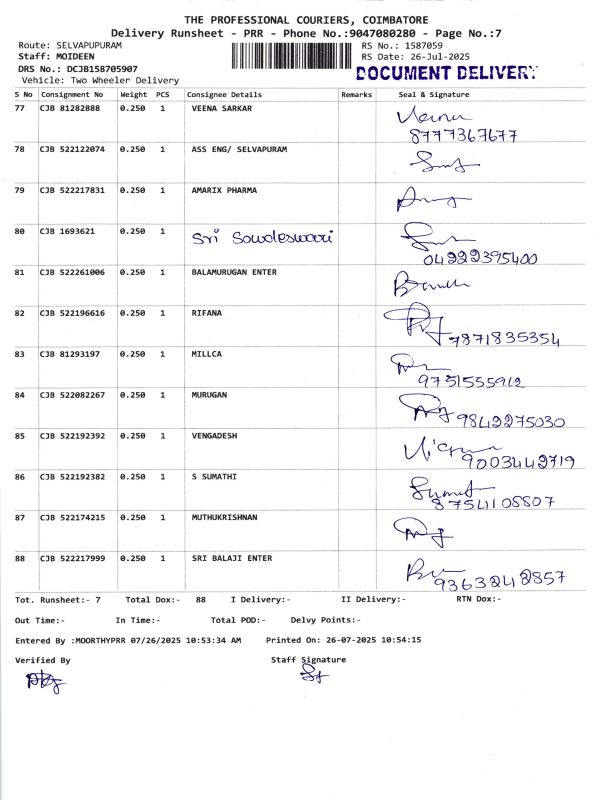 THE PROFESSIONAL COURIERS, COIMBATORE
Delivery Runsheet - PRR - Phone No.:9047080280 - Page No.:7
Route: SELVAPUPURAM RS No.: 1587059
Staff: MOIDEEN RS Date: 26-Jul-2025
DRS No.: DCJB158705907 DOCUMENT DELIVERY
Vehicle: Two Wheeler Delivery
S No Consignment No Weight PCS Consignee Details Remarks Seal & Signature
77 CJB 81282888 0.250 1 VEENA SARKAR
8777367677
78 CJB 522122074 0.250 1 ASS ENG/ SELVAPURAM
79 CJB 522217831 0.250 1 AMARIX PHARMA
80 CJB 1693621 0.250 1 Sri Sowdeswari
04222395400
81 CJB 522261006 0.250 1 BALAMURUGAN ENTER
82 CJB 522196616 0.250 1 RIFANA
9871835354
83 CJB 81293197 0.250 1 MILLCA
9731555912
84 CJB 522082267 0.250 1 MURUGAN 9842275030
85 CJB 522192392 0.250 1 VENGADESH
9003442719
86 CJB 522192382 0.250 1 S SUMATHI
8754108807
87 CJB 522174215 0.250 1 MUTHUKRISHNAN
88 CJB 522217999 0.250 1 SRI BALAJI ENTER
9363242857
Tot. Runsheet:- 7 Total Dox:- 88 I Delivery:- II Delivery:- RTN Dox:-
Out Time:- In Time:- Total POD:- Delvy Points:-
Entered By :MOORTHYPRR 07/26/2025 10:53:34 AM Printed On: 26-07-2025 10:54:15
Verified By Staff Signature